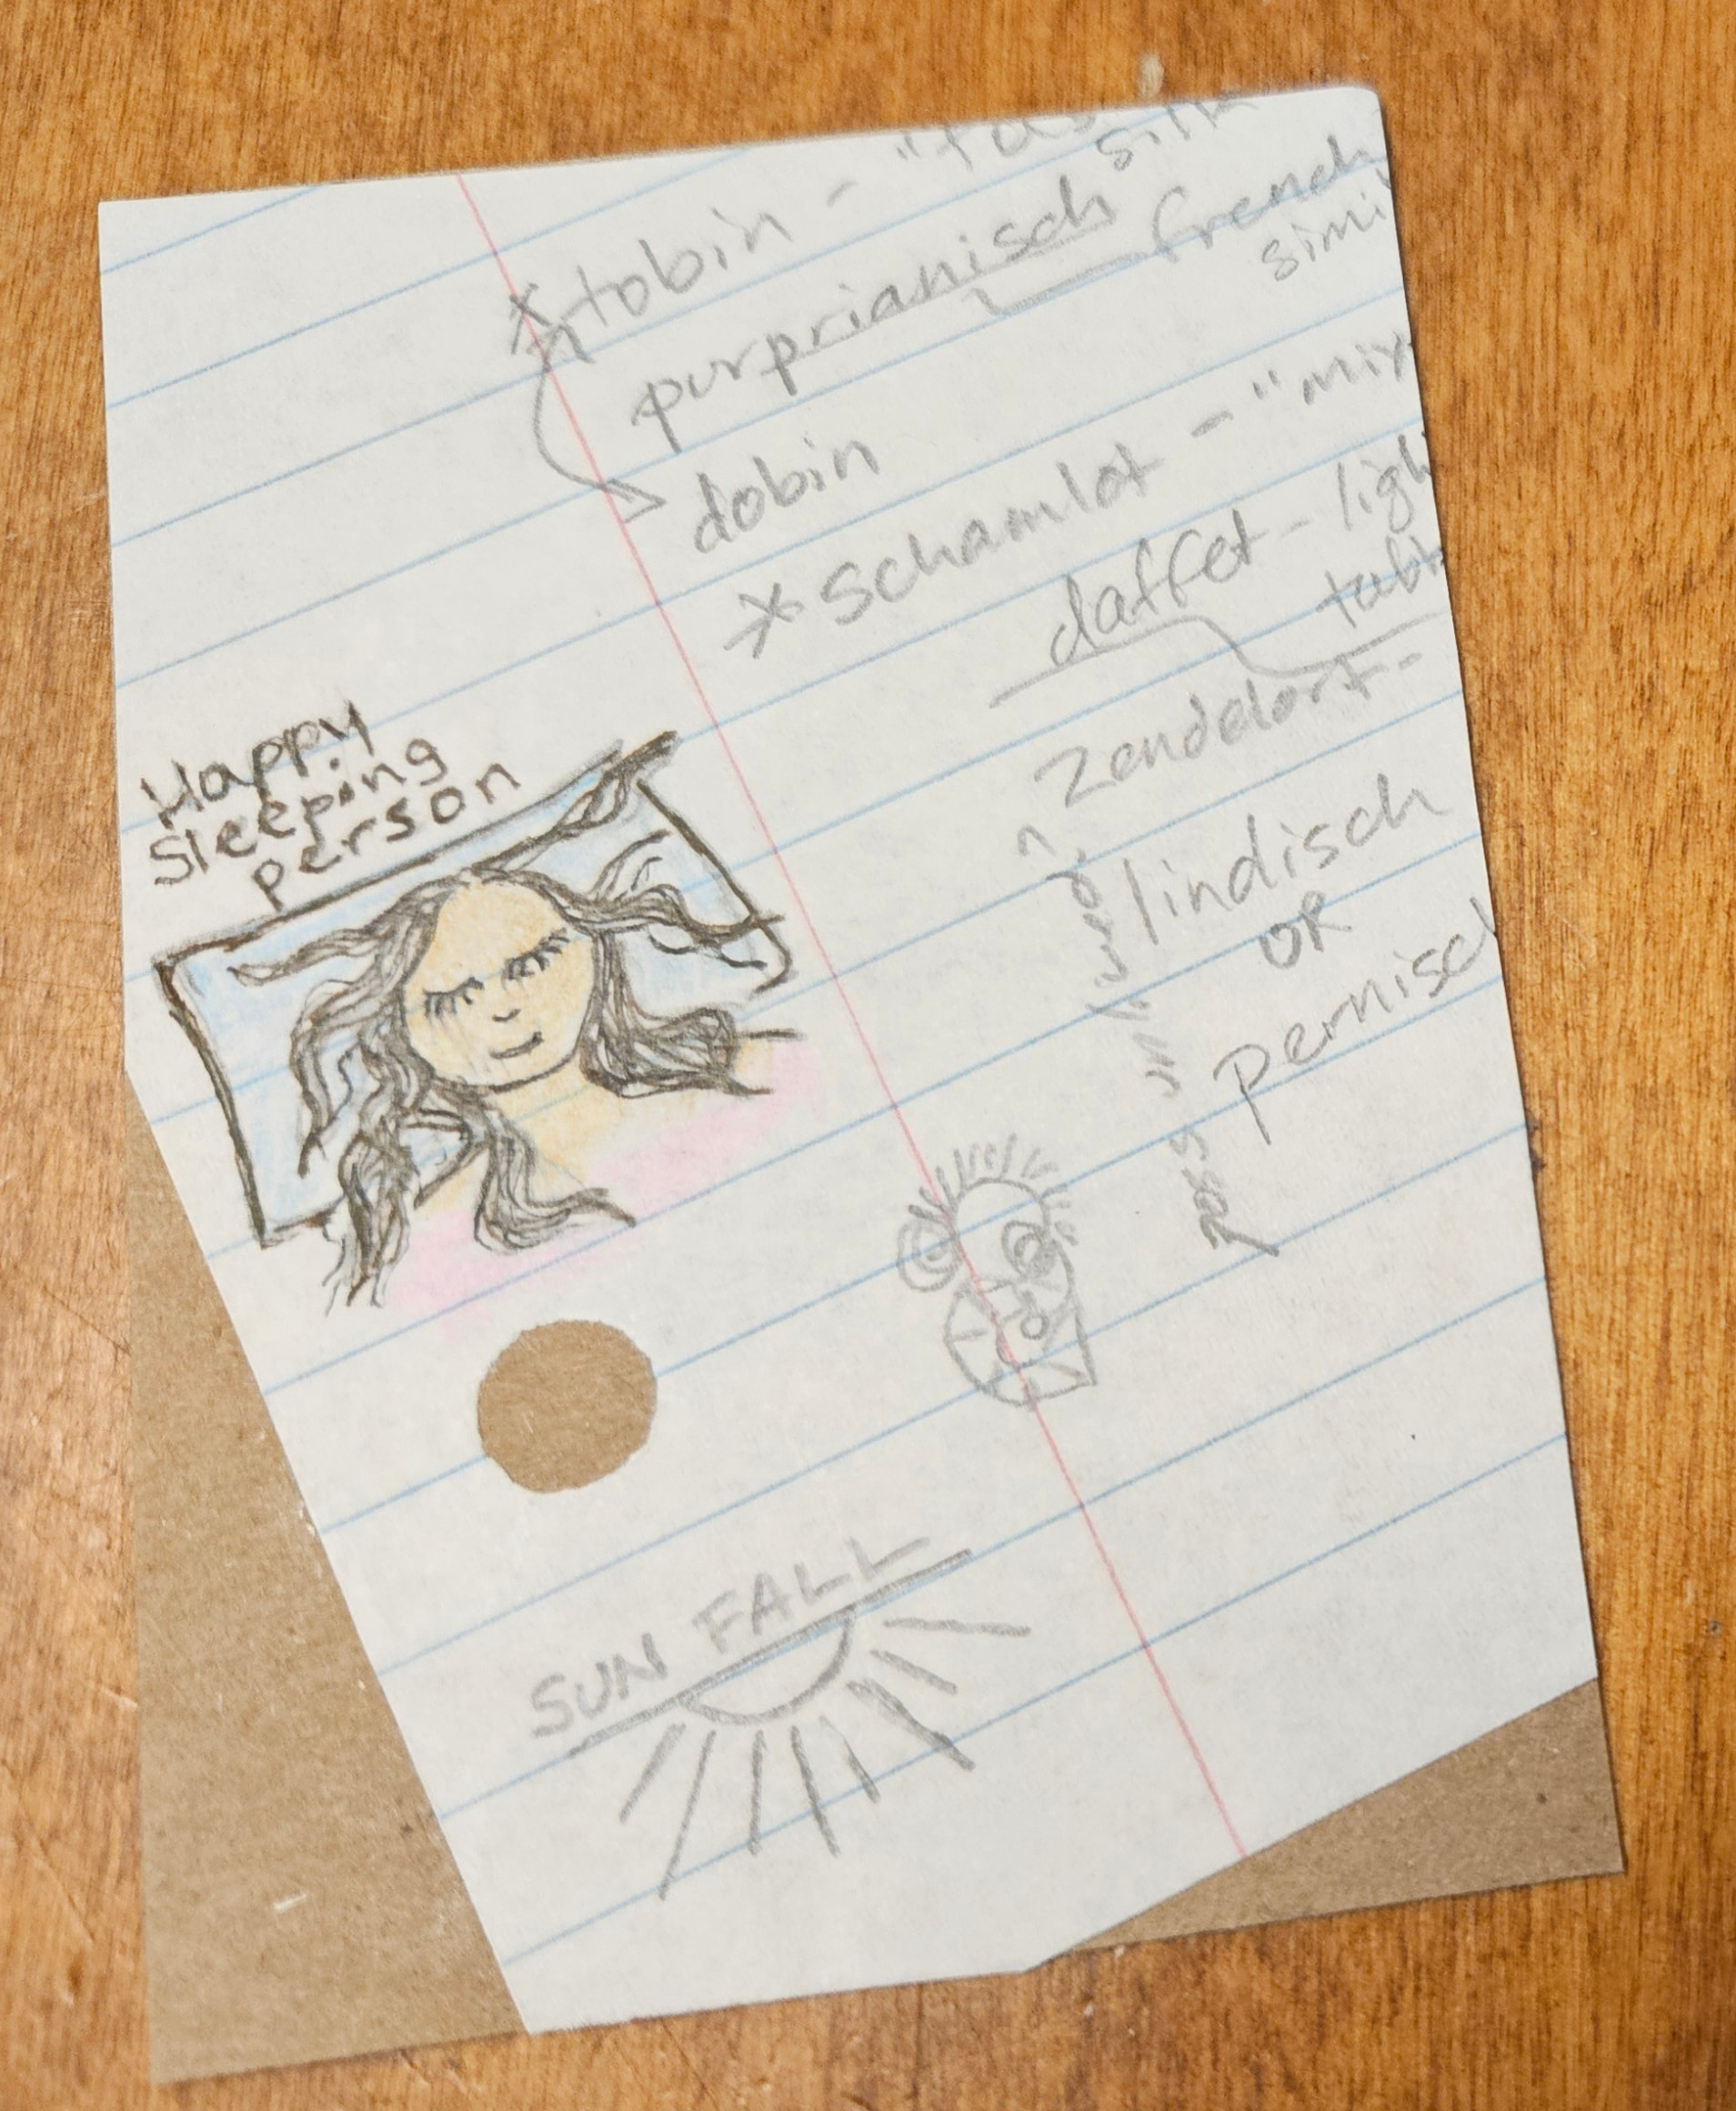 * tobin -
purprianisch french
simi
dobin
* schamlot - "mix
daffet - ligh
tabi
Zendelort -
lindisch
OR
pernisch
Happy
Sleeping
person
SUN FALL